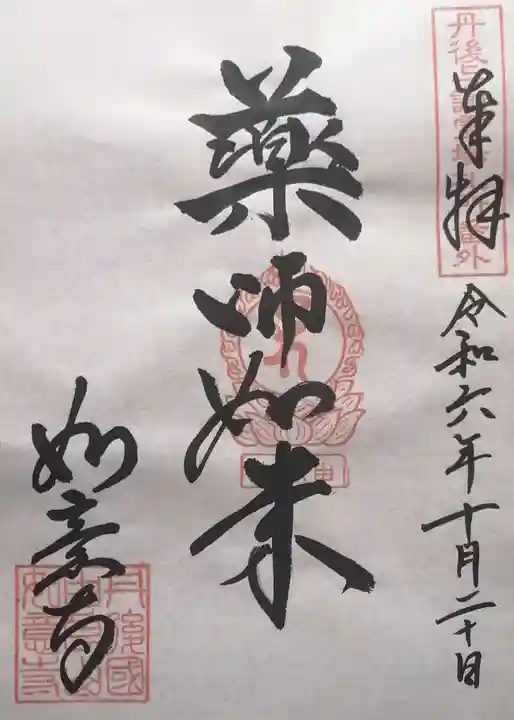 奉拝
令和六年十月二十日
薬師如来
如意寺
丹後國
如意寺